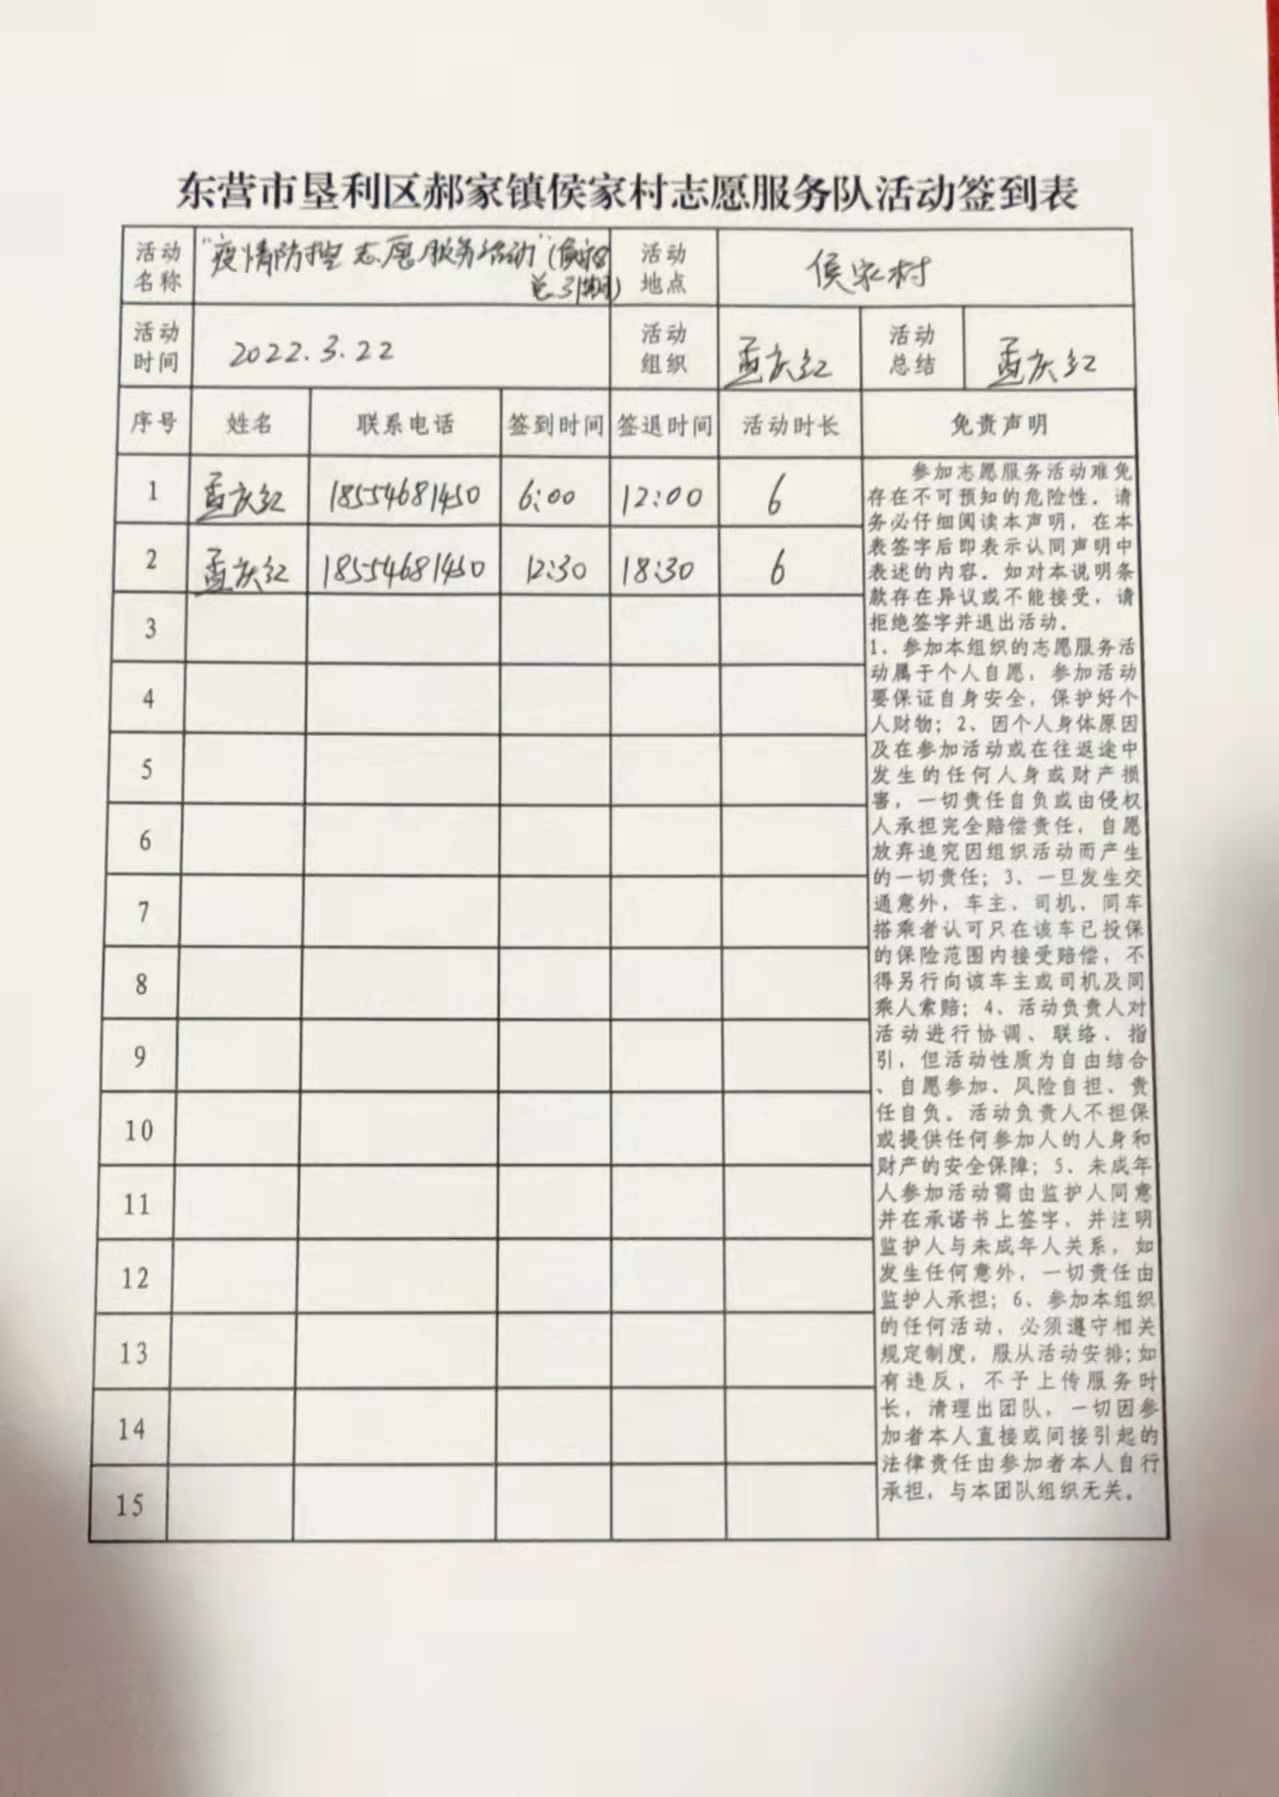 东营市垦利区郝家镇侯家村志愿服务队活动签到表
活动名称 "疫情防控志愿服务活动" 活动地点 侯家村
活动时间 2022.3.22 活动组织 孟庆红 活动总结 孟庆红
序号 姓名 联系电话 签到时间 签退时间 活动时长 免责声明
1 孟庆红 18554681450 6:00 12:00 6
2 孟庆红 18554681450 12:30 18:30 6
3
4
5
6
7
8
9
10
11
12
13
14
15
参加志愿服务活动难免
存在不可预知的危险性，请
务必仔细阅读本声明，在本
表签字后即表示认同声明中
表述的内容。如对本说明条
款存在异议或不能接受，请
拒绝签字并退出活动。
1、参加本组织的志愿服务活
动属于个人自愿，参加活动
要保证自身安全，保护好个
人财物；2、因个人身体原因
及在参加活动或在往返途中
发生的任何人身或财产损
害，一切责任自负或由侵权
人承担完全赔偿责任，自愿
放弃追究因组织活动而产生
的一切责任；3、一旦发生交
通意外，车主、司机、同车
搭乘者认可只在该车已投保
的保险范围内接受赔偿，不
得另行向该车主或司机及同
乘人索赔；4、活动负责人对
活动进行协调、联络、指
引，但活动性质为自由结合
、自愿参加、风险自担、责
任自负。活动负责人不担保
或提供任何参加人的人身和
财产的安全保障；5、未成年
人参加活动需由监护人同意
并在承诺书上签字，并注明
监护人与未成年人关系，如
发生任何意外，一切责任由
监护人承担；6、参加本组织
的任何活动，必须遵守相关
规定制度，服从活动安排；如
有违反，不予上传服务时
长，清理出团队，一切因参
加者本人直接或间接引起的
法律责任由参加者本人自行
承担，与本团队组织无关。